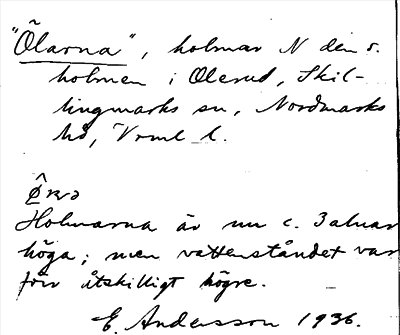 "Ölarna", holmar N den s.
holmen i Olerud, Skil-
lingmarks sn, Nordmarks
hd, Vrml l.
Holmarna är nu c. 3 alnar
höga; men vattenståndet var
förr åtskilligt högre.
E. Andersson 1936.